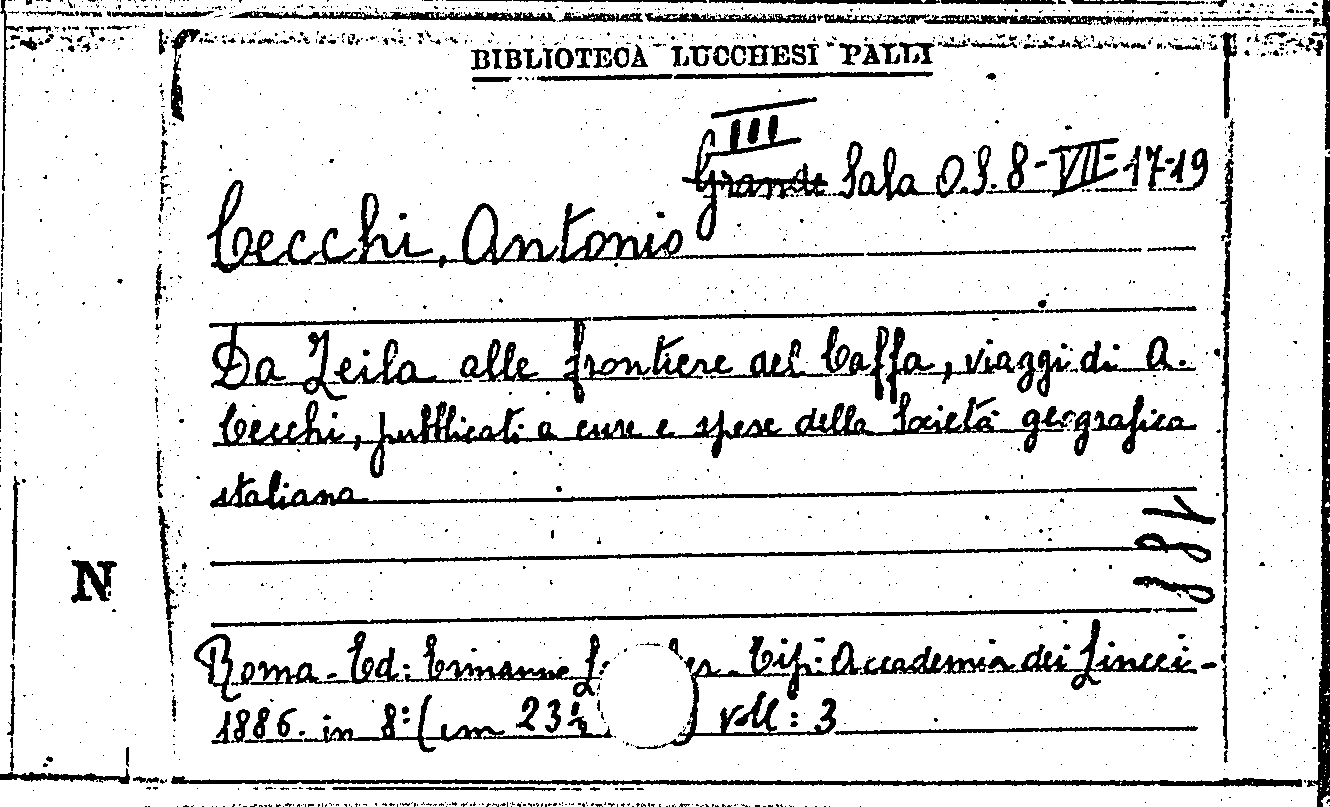 BIBLIOTECA LUCCHESI PALLI
III
Grande Sala O.S. 8-VII-17-19
Cecchi, Antonio
Da Zeila alle frontiere del Caffa, viaggi di A.
Cecchi, pubblicati a cure e spese della Società geografica
italiana
N
Roma - Ed: Ermanno Tip: Accademia dei Lincei -
1886. in 8: (cm 23½ ) voll: 3